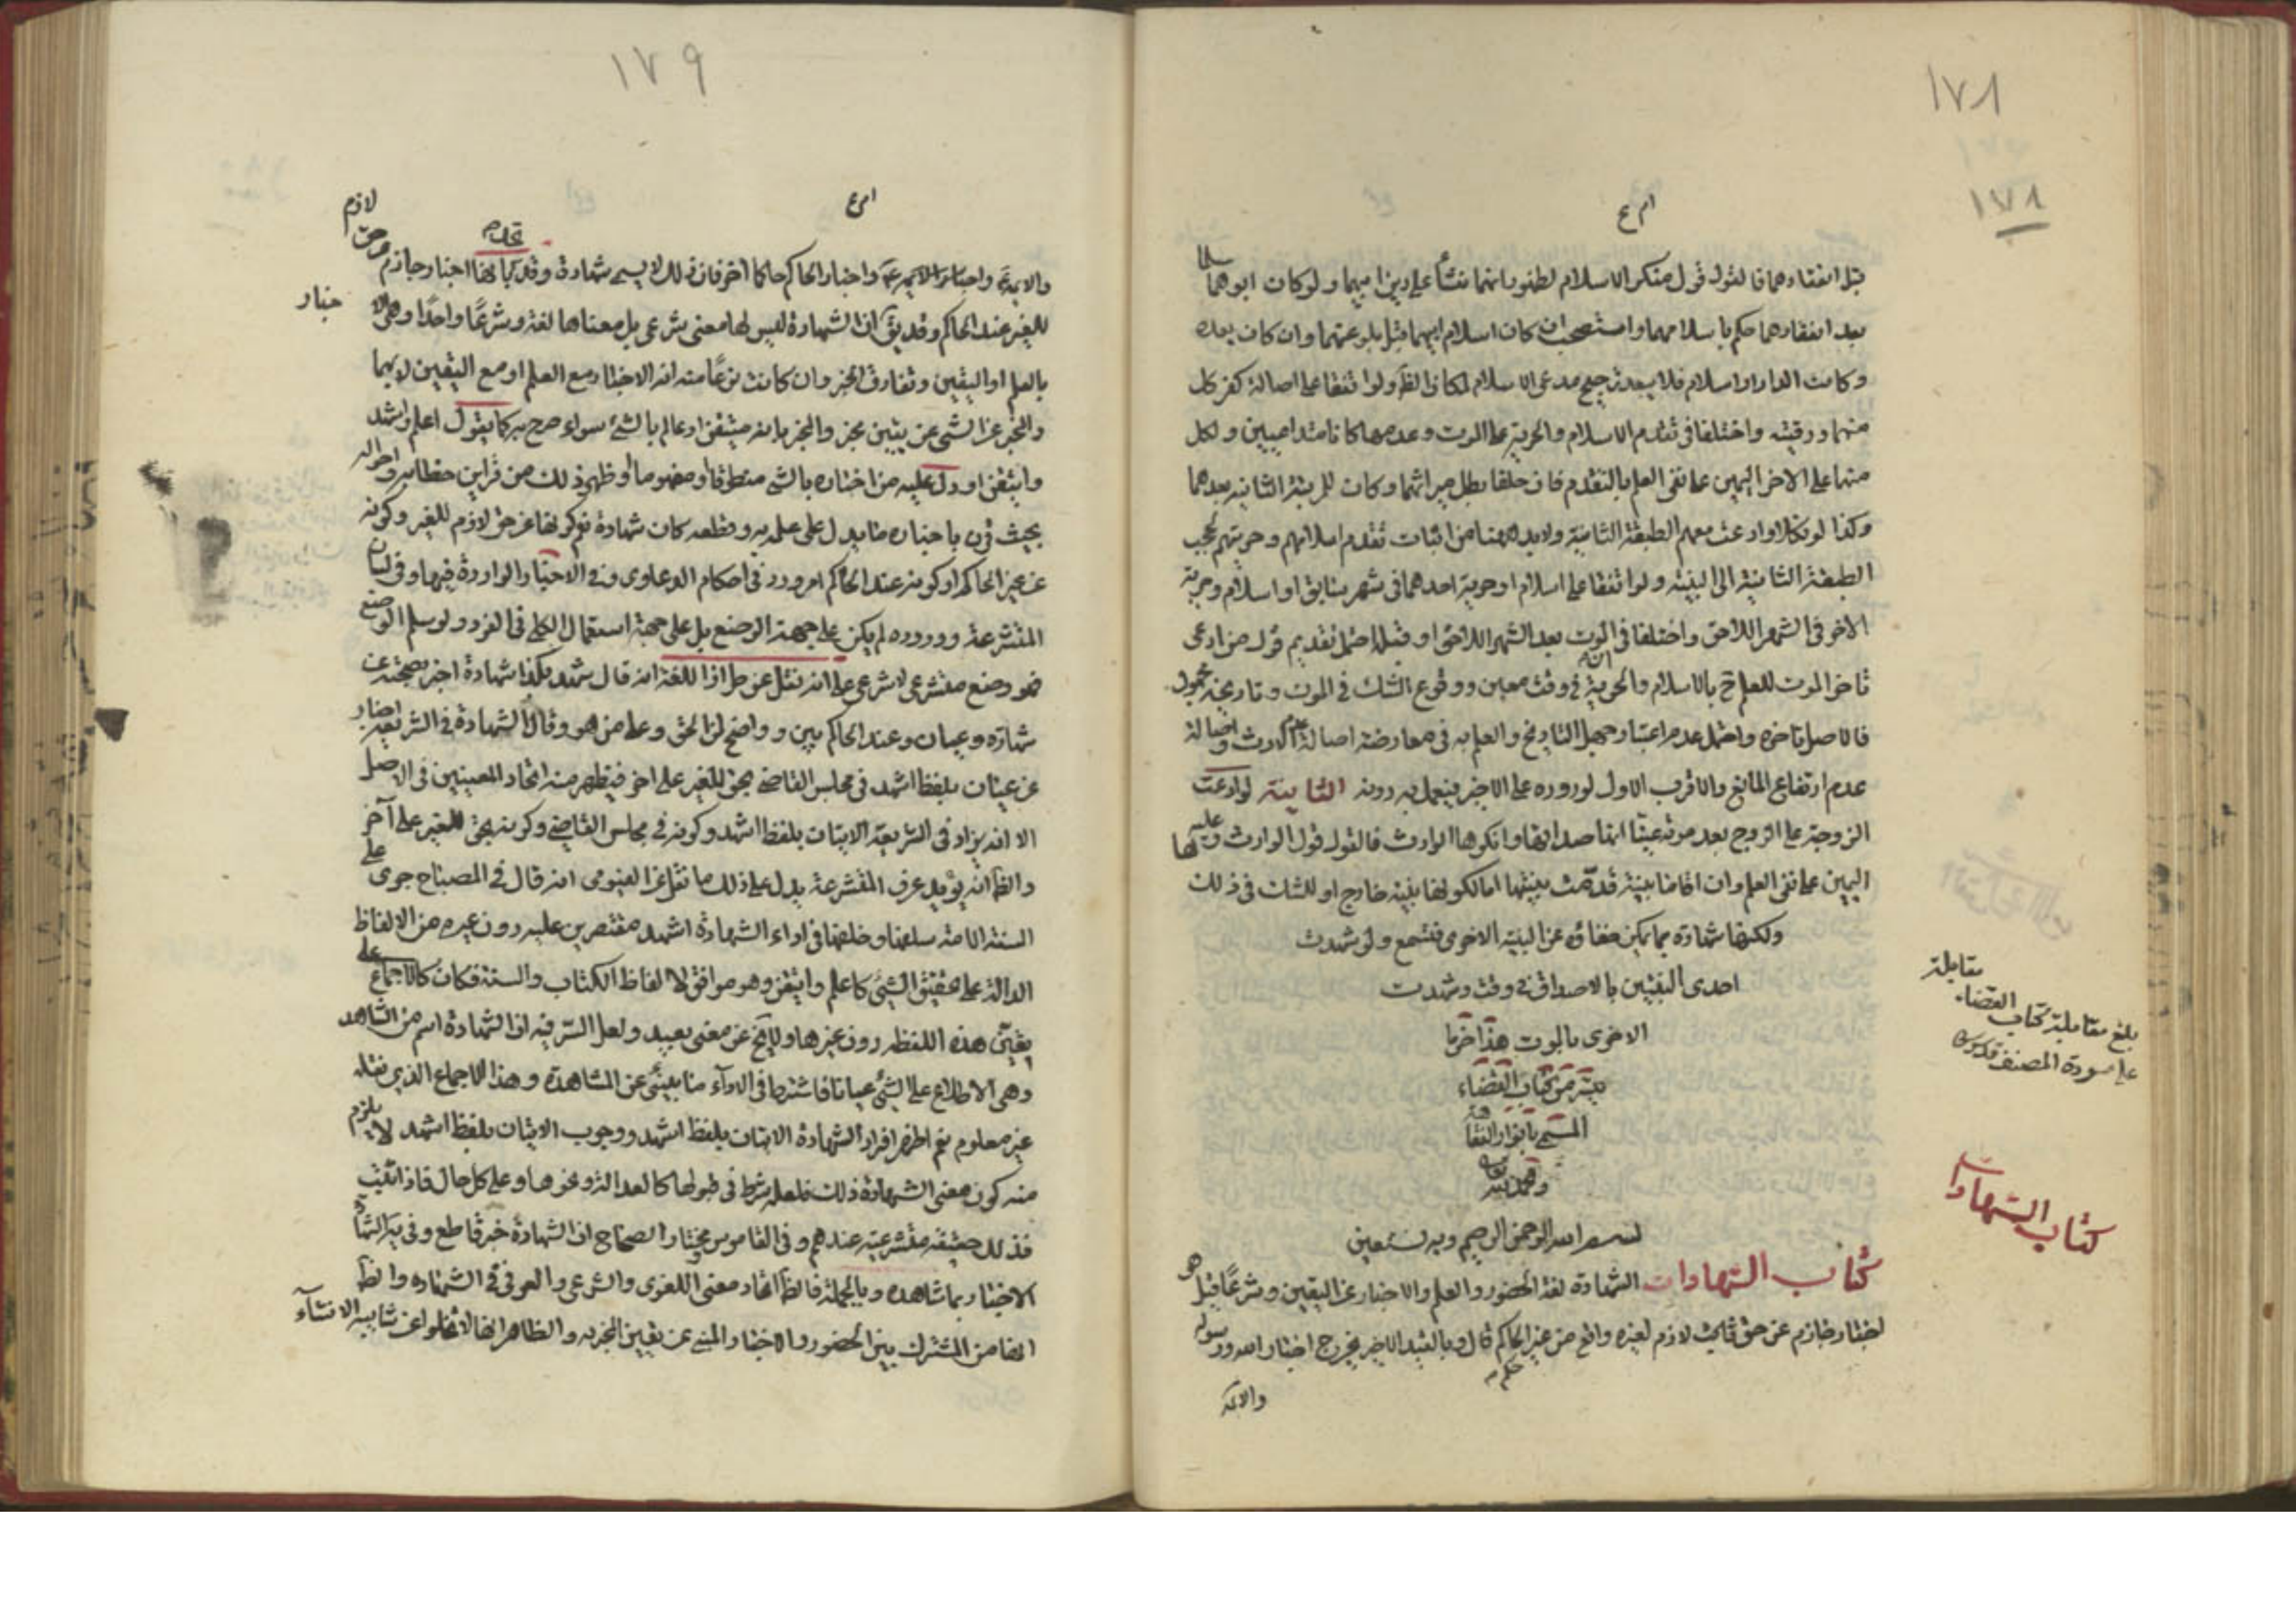 ١٧٨
١٧٨
قبل انفقادهما فالقول قول منكر الاسلام لظهور انهما نشأ على دين ابيهما ولو كان ابوهما
بعد انفقادهما حكم باسلامهما واستصحب ان كان اسلام ابيهما قبل بلوغهما وان كان بعده
وكانت الدار دار اسلام فلا يبعد ترجيح مدعى الاسلام لمكان الظ ولو اتفقا على اصالة كفر كل
منهما ورقيته واختلفا في تقدم الاسلام والحرية على الموت وعدمها كانا متداعيين ولكل
منهما على الاخر اليمين على نفى العلم بالتقدم فان حلفا بطل ميراثهما وكان للمرتبة الثانية بعدهما
وكذا لو نكلا وادعت معهم الطبقة الثانية ولابد هنا من اثبات تقدم اسلامهم وحريتهم لحجب
الطبقة الثانية الى البينة ولو اتفقا على اسلام او حرية احدهما في شهر سابق او اسلام وحرية
الاخر في الشهر اللاحق واختلفا في الموت بعد الشهر اللاحق او قبله احتمل تقديم قول من ادعى
تاخر الموت للعلم ح بالاسلام والحرية في وقت معين ووقوع الشك في الموت وتاريخه مجهول
فالاصل تاخره واحتمل عدم اعتبار جهل التاريخ والعلم به في معارضة اصالة عدم الارث واصالة
عدم ارتفاع المانع والاقرب الاول لوروده على الاخير فيعمل به دونه الثانية لو ادعت
الزوجة على الزوج بعد موته عينا انها صداقها وانكرها الوارث فالقول قول الوارث وعليه لها
اليمين على نفى العلم وان اقاما بينة قدمت بينتها اما لكونها بينة خارج او للشك في ذلك
ولكنها شهادة بما يمكن خفاؤه عن البينة الاخرى فتسمع ولو شهدت
احدى البينتين بالاصداق في وقت وشهدت
الاخرى بالموت هذا اخر ما
كتاب القضاء
المسمى بانوار الفقاهة
بسم الله الرحمن الرحيم وبه نستعين
كتاب الشهادات الشهادة لغة الحضور والعلم والاخبار عن اليقين وشرعًا قيل هو
اخبار جازم عن حق ثابت لازم لغيره واقع من غير الحاكم قال وبالقيد الاخير يخرج اخبار الله ورسوله
والائمة
مقابلة
بلغ مقابلة كتاب القضاء
على مسودة المصنف
كتاب الشهادات
١٧٩
والائمة واخبار الحاكم حاكما اخر فان ذلك لا يسمى شهادة اخبار جازم
للغير عند الحاكم وقد يق ان الشهادة ليس لها معنى شرعي بل معناها لغة وشرعًا واحدًا
بالعلم او اليقين وتفارق الخبر وان كانت نوعًا منه انه الاخبار مع العلم او مع اليقين
والمخبر عن الشئ عن يقين مخبر والمخبر بانه متيقن او عالم بالشئ سواء صرح به كما يقول اعلم واشهد
واتيقن او دل عليه من اخباره بالشئ منطوقا او مفهوما او ظهر ذلك من قراين خطابه واحواله
بحيث قرن باخباره ما يدل على علمه به وقطعه كان شهادة ثم كونها عن حق لازم للغير وكونه
عن غير الحاكم او كونه عند الحاكم امر ورد في احكام الدعاوى وفي الاخبار الواردة فيها وفي لسان
المتشرعة ووروده لم يكن على جهة الوضع بل على جهة استعمال الكلي في الفرد ولو سلم الوضع
فهو وضع متشرعي لا شرعي على انه نقل عن طراز اللغة انه قال شهد بكذا شهادة اخبر بصحته عن
شهادة وعيان وعند الحاكم بين وواضح لمن الحق وعلى من هو وقال الشهادة في الشريعة اخبار
عن عيان بلفظ اشهد في مجلس القاضي بحق للغير على اخر فيظهر منه اتحاد المعنيين في الاصل
الا انه يزاد في الشريعة الاتيان بلفظ اشهد وكونه في مجلس القاضي وكونه بحق للغير على آخر
والظ انه يؤيد عرف المتشرعة يدل على ذلك ما نقل عن الفيومى انه قال في المصباح جرى على
السنة الامة سلفها وخلفها في اداء الشهادة اشهد مقتصرين عليه دون غيره من الالفاظ
الدالة على تحقيق الشئ كاعلم واتيقن وهو موافق لالفاظ الكتاب والسنة فكان كالاجماع على
تعيين هذه اللفظة دون غيرها ولا يخ عن معنى بعيد ولعل السر فيه ان الشهادة اسم من المشاهدة
وهى الاطلاع على الشئ عيانا فاشترط في الاداء ما ينبئ عن المشاهدة وهذا الاجماع الذي نقله
غير معلوم نعم اظهر افراد الشهادة الاتيان بلفظ اشهد ووجوب الاتيان بلفظ اشهد لا يلزم
منه كون معنى الشهادة ذلك فلعله شرط في قبولها كالعدالة ونحوها وعلى كل حال
فذلك حقيقة متشرعية عندهم وفي القاموس ومختار الصحاح ان الشهادة خبر قاطع
الاخبار بما شاهده وبالجملة فالظ اتحاد معنى اللغوي والشرعي والعرفي في الشهادة والظ
انها من المشترك بين الحضور والاخبار المنبئ عن يقين المخبر به والظاهر انها لا تخلو عن شايبة الانشاء